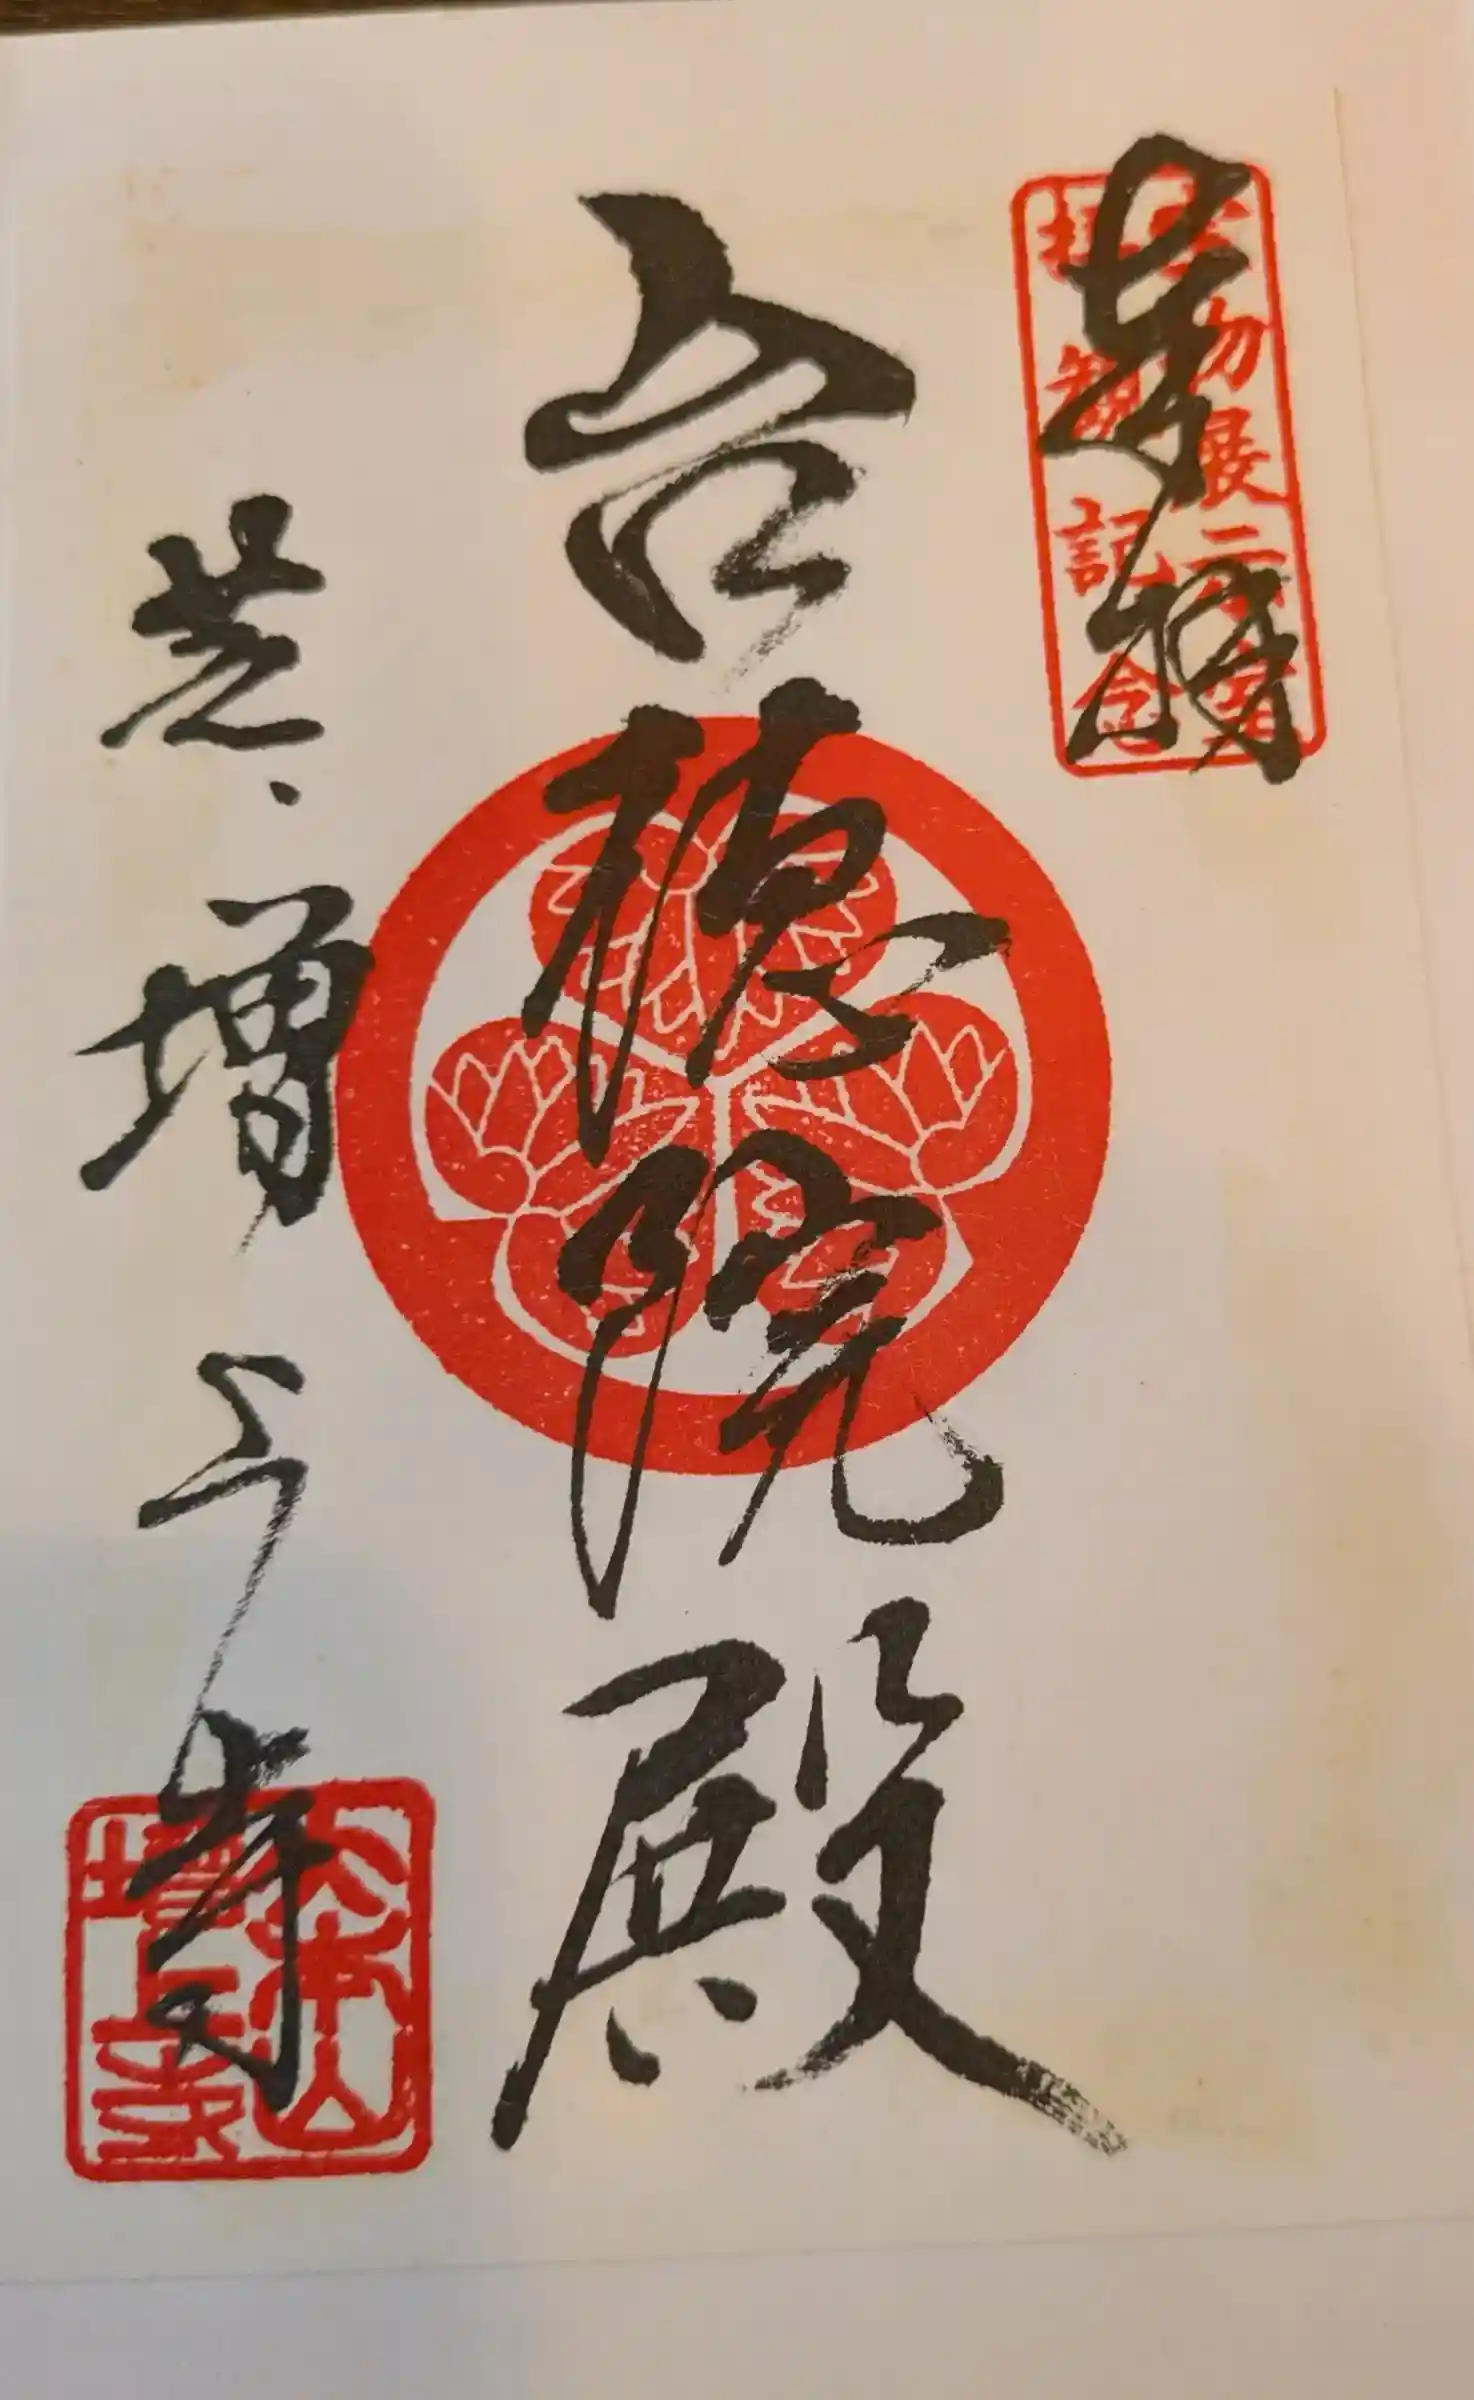 奉拝
宝物展示室
拝観記念
台徳院殿
芝、増上寺
三縁山
増上寺